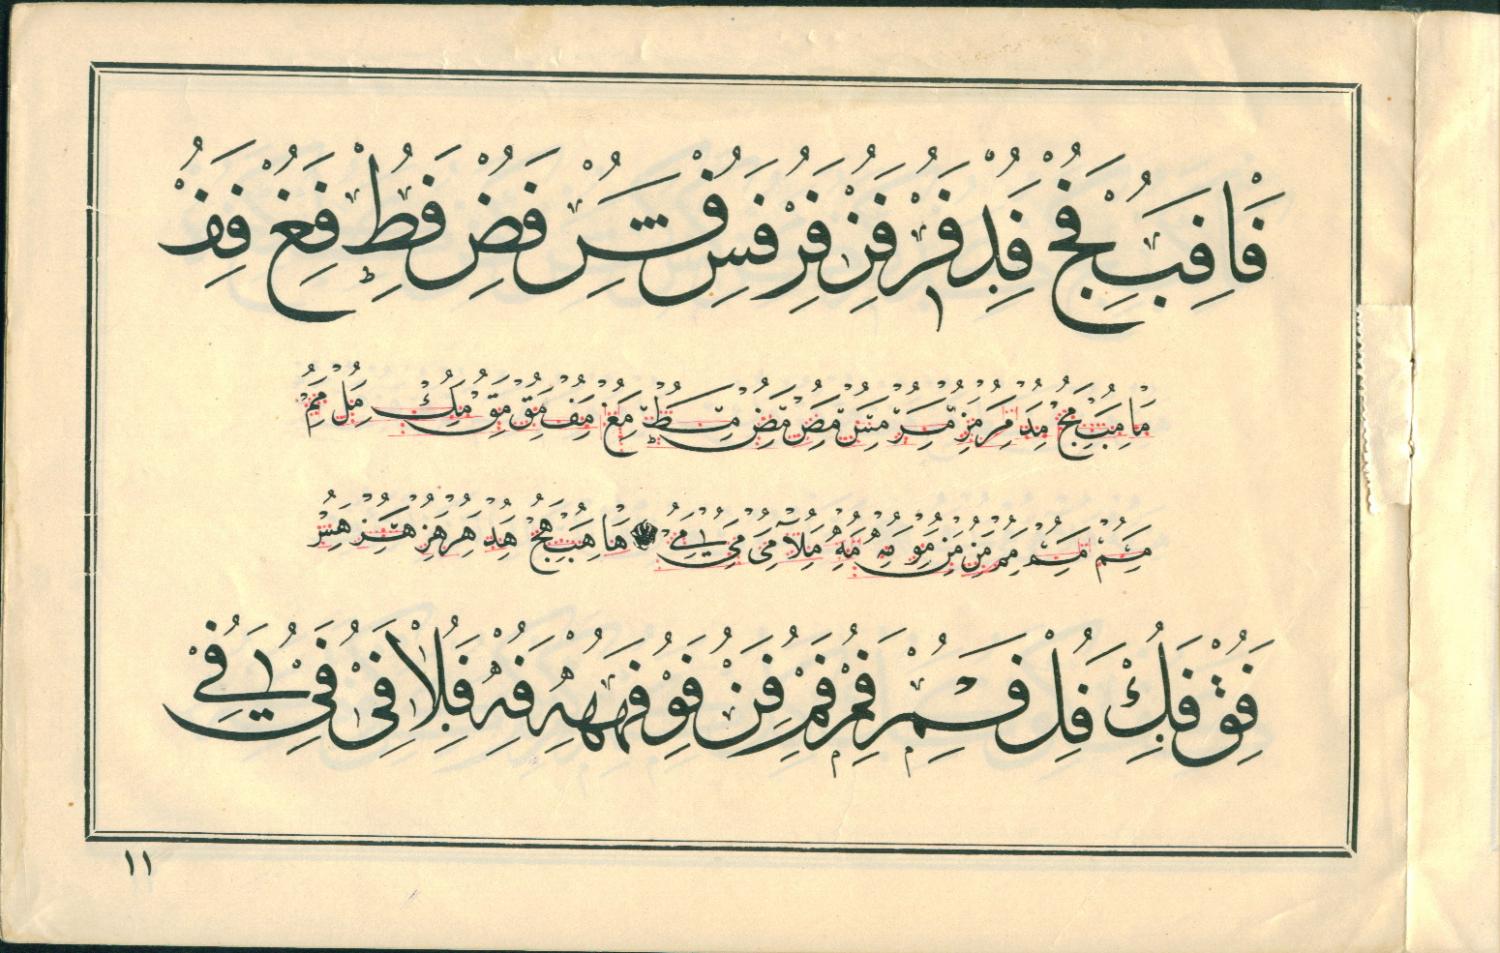 فا فب فج فد فر فز فر فس فش فض فط فغ فف
ما مب مج مد مر مز مر مس مض مض مط مغ مف مق مق مك مل مم
مم مم مم من من مو مه مه ملا می می می ها هب هج هد هر هز هز هس
فق فك فل فم فم فم فن فو فهه فه فلا فی فی فی
١١